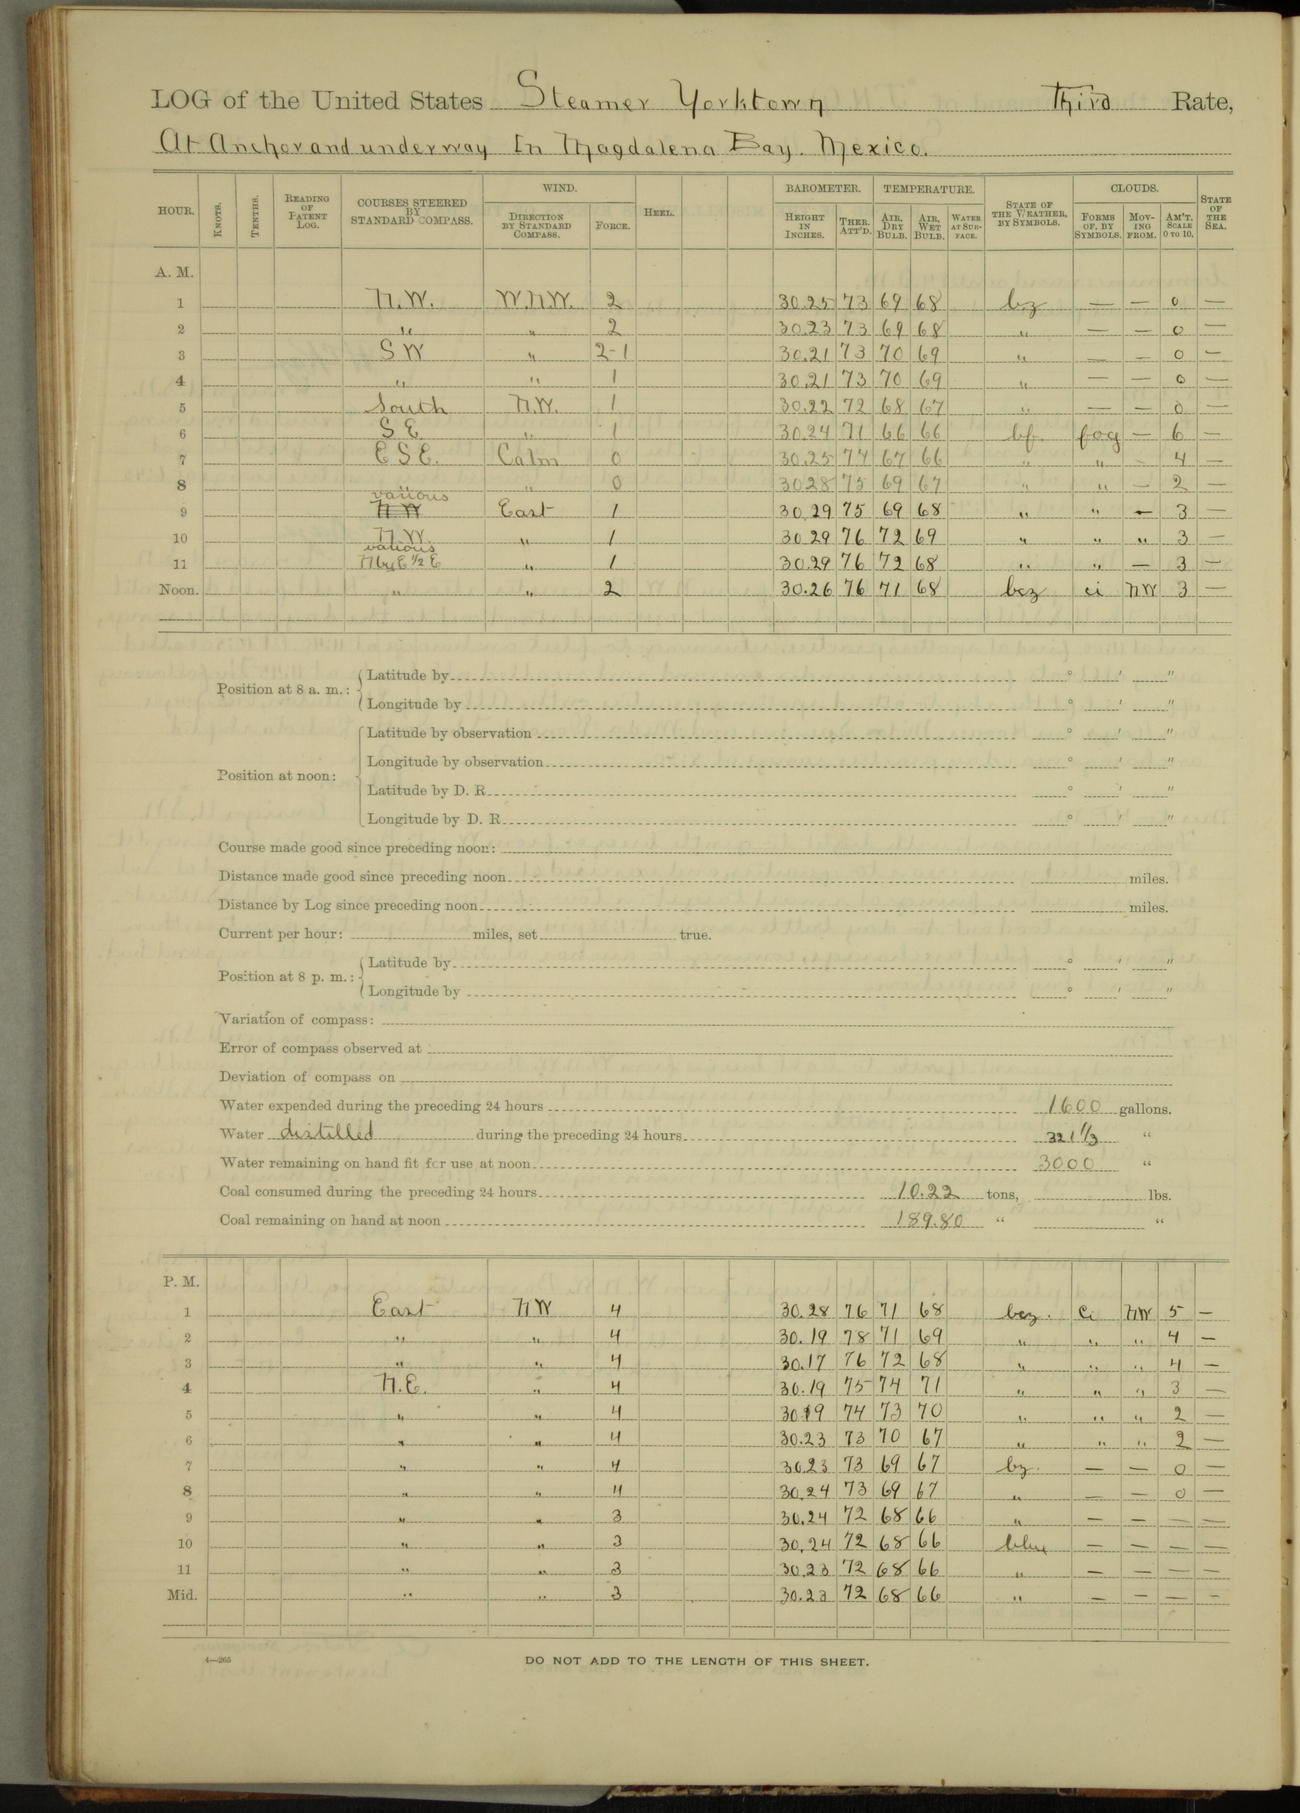 LOG of the United States Steamer Yorktown Third Rate,
At Anchor and underway In Magdalena Bay. Mexico.
HOUR. KNOTS. TENTHS. READING OF PATENT LOG. COURSES STEERED BY STANDARD COMPASS. WIND. DIRECTION BY STANDARD COMPASS. FORCE. HEEL. BAROMETER. HEIGHT IN INCHES. THER. ATT'D. TEMPERATURE. AIR, DRY BULB. AIR, WET BULB. WATER AT SURFACE. STATE OF THE WEATHER, BY SYMBOLS. CLOUDS. FORMS OF, BY SYMBOLS. MOVING FROM. AM'T. SCALE 0 TO 10. STATE OF THE SEA.
A. M.
1 N.W. W.N.W. 2 30.25 73 69 68 bz — — 0 —
2 " " 2 30.23 73 69 68 " — — 0 —
3 SW " 2-1 30.21 73 70 69 " — — 0 —
4 " " 1 30.21 73 70 69 " — — 0 —
5 South N.W. 1 30.22 72 68 67 " — — 0 —
6 SE " 1 30.24 71 66 66 bf. fog — 6 —
7 ESE. Calm 0 30.25 74 67 66 " " — 4 —
8 " " 0 30.28 75 69 67 " " — 2 —
various
9 NW East 1 30.29 75 69 68 " " — 3 —
10 N.W. " 1 30.29 76 72 69 " " " 3 —
various
11 N by E ½ E " 1 30.29 76 72 68 " " — 3 —
Noon. " " 2 30.26 76 71 68 bcz ci NW 3 —
Position at 8 a. m.: Latitude by ° ' "
Longitude by ° ' "
Position at noon: Latitude by observation ° ' "
Longitude by observation ° ' "
Latitude by D. R. ° ' "
Longitude by D. R. ° ' "
Course made good since preceding noon:
Distance made good since preceding noon miles.
Distance by Log since preceding noon miles.
Current per hour: miles, set true.
Position at 8 p. m.: Latitude by ° ' "
Longitude by ° ' "
Variation of compass:
Error of compass observed at
Deviation of compass on
Water expended during the preceding 24 hours 1600 gallons.
Water distilled during the preceding 24 hours 321 1/3 "
Water remaining on hand fit for use at noon 3000 "
Coal consumed during the preceding 24 hours 10.22 tons, lbs.
Coal remaining on hand at noon 189.80 " "
P. M.
1 East NW 4 30.28 76 71 68 bcz. Ci NW 5 —
2 " " 4 30.19 78 71 69 " " " 4 —
3 " " 4 30.17 76 72 68 " " " 4 —
4 N.E. " 4 30.19 75 74 71 " " " 3 —
5 " " 4 30.19 74 73 70 " " " 2 —
6 " " 4 30.23 73 70 67 " " " 2 —
7 " " 4 30.23 73 69 67 bz. — — 0 —
8 " " 4 30.24 73 69 67 " — — 0 —
9 " " 3 30.24 72 68 66 " — — — —
10 " " 3 30.24 72 68 66 — — — —
11 " " 3 30.23 72 68 66 " — — — —
Mid. " " 3 30.23 72 68 66 " — — — —
4—265 DO NOT ADD TO THE LENGTH OF THIS SHEET.